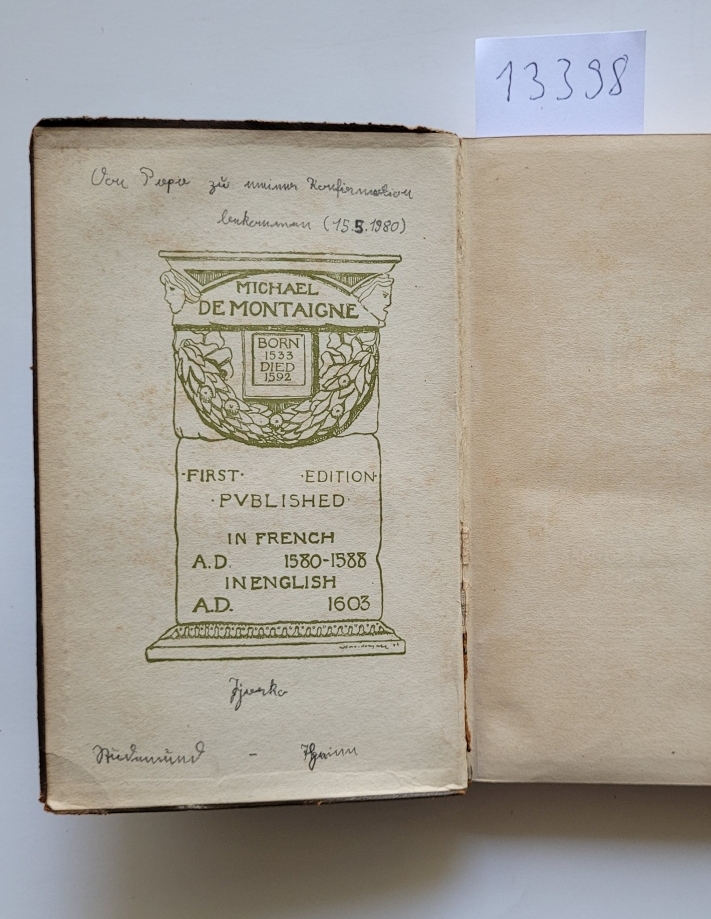 13398
Von Papa zu meiner Konfirmation
bekommen (15.5.1980)
MICHAEL
DE MONTAIGNE
BORN
1533
DIED
1592
·FIRST· ·EDITION·
·PVBLISHED·
IN FRENCH
A.D. 1580-1588
IN ENGLISH
A.D. 1603